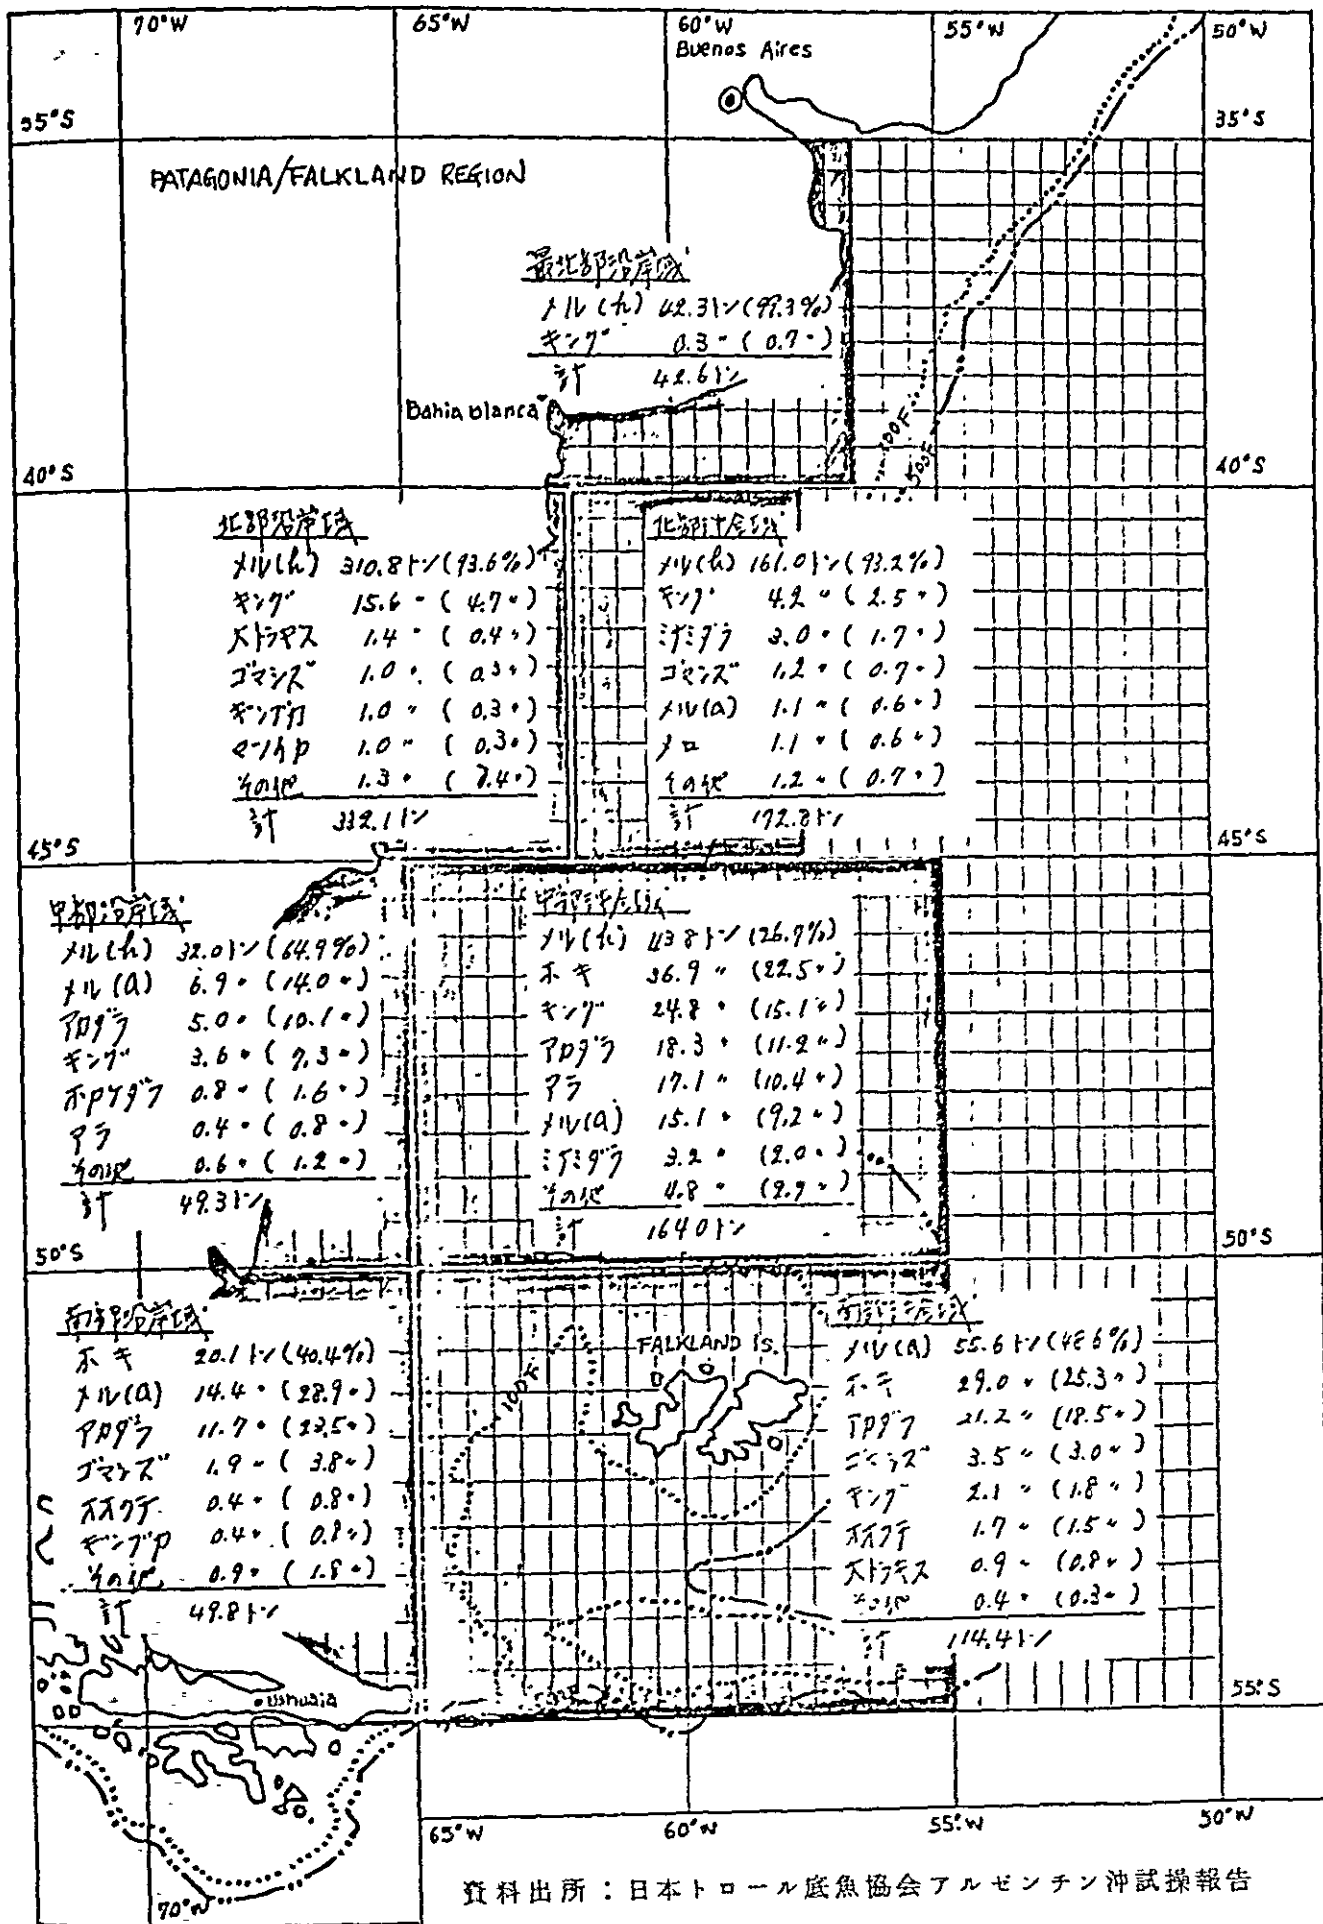 70°W
65°W
60°W
55°W
50°W
Buenos Aires
35°S
35°S
PATAGONIA/FALKLAND REGION
最北部沿岸域
メル(h) 42.3トン(99.3%)
キング 0.3〃(0.7〃)
計 42.6トン
Bahia blanca
100F
500F
40°S
40°S
北部沿岸域
メル(h) 310.8トン(93.6%)
キング 15.6〃(4.7〃)
1.4〃(0.4〃)
1.0〃(0.3〃)
1.0〃(0.3〃)
1.0〃(0.3〃)
その他 1.3〃(0.4〃)
計 332.1トン
北部沖合域
メル(h) 161.0トン(93.2%)
キング 4.2〃(2.5〃)
ミナミダラ 3.0〃(1.7〃)
1.2〃(0.7〃)
メル(a) 1.1〃(0.6〃)
メロ 1.1〃(0.6〃)
その他 1.2〃(0.7〃)
計 172.8トン
45°S
45°S
中部沿岸域
メル(h) 32.0トン(64.9%)
メル(a) 6.9〃(14.0〃)
5.0〃(10.1〃)
キング 3.6〃(7.3〃)
0.8〃(1.6〃)
アラ 0.4〃(0.8〃)
その他 0.6〃(1.2〃)
計 49.3トン
中部沖合域
メル(h) 43.8トン(26.7%)
ホキ 36.9〃(22.5〃)
キング 24.8〃(15.1〃)
18.3〃(11.2〃)
アラ 17.1〃(10.4〃)
メル(a) 15.1〃(9.2〃)
ミナミダラ 3.2〃(2.0〃)
その他 4.8〃(2.9〃)
計 164.0トン
50°S
50°S
南部沿岸域
ホキ 20.1トン(40.4%)
メル(a) 14.4〃(28.9〃)
11.7〃(23.5〃)
1.9〃(3.8〃)
0.4〃(0.8〃)
0.4〃(0.8〃)
その他 0.9〃(1.8〃)
計 49.8トン
100F
FALKLAND IS.
南部沖合域
メル(a) 55.6トン(48.6%)
ホキ 29.0〃(25.3〃)
21.2〃(18.5〃)
3.5〃(3.0〃)
キング 2.1〃(1.8〃)
1.7〃(1.5〃)
0.9〃(0.8〃)
その他 0.4〃(0.3〃)
計 114.4トン
ushuaia
55°S
65°W
60°W
55°W
50°W
70°W
資料出所：日本トロール底魚協会アルゼンチン沖試操報告